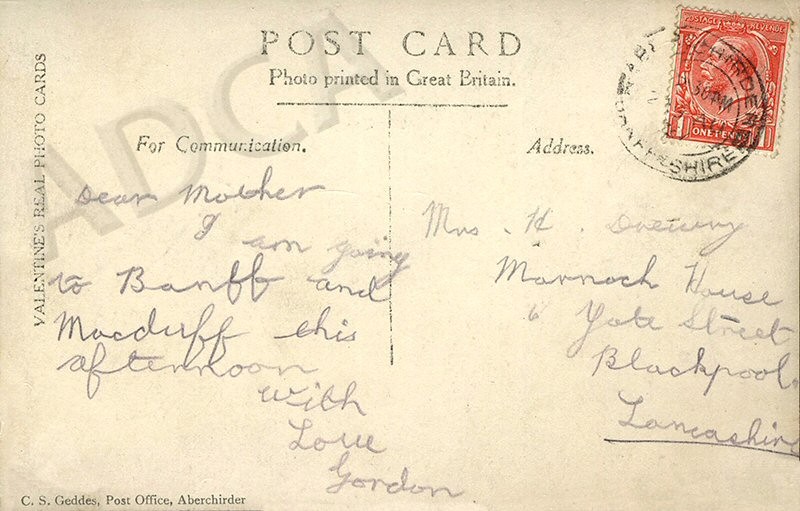 POST CARD
Photo printed in Great Britain.
VALENTINE'S REAL PHOTO CARDS
For Communication.
Dear Mother
I am going
to Banff and
Macduff this
afternoon
With
Love
Gordon.
C. S. Geddes, Post Office, Aberchirder
Address.
Mrs. H.
Marnoch House
6 Yate Street
Blackpool.
Lancashire
POSTAGE REVENUE
ONE PENNY
ABERCHIRDER
BANFFSHIRE
ADCA